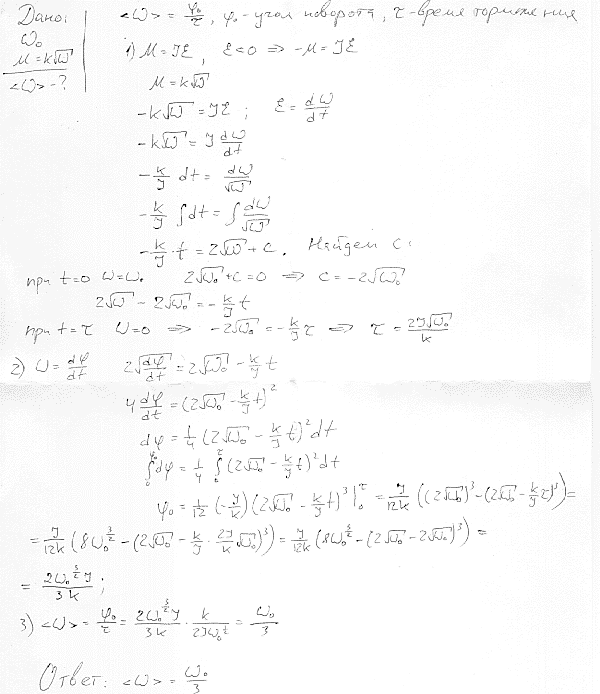 Дано: <ω> = φ₀/τ, φ₀ - угол поворота, τ - время торможения
ω₀
M = k√ω
<ω> - ?
1) M = Jε, ε<0 ⇒ -M = Jε
M = k√ω
-k√ω = Jε ; ε = dω/dt
-k√ω = J dω/dt
-k/J dt = dω/√ω
-k/J ∫dt = ∫dω/√ω
-k/J · t = 2√ω + c. Найдем c:
при t=0 ω=ω₀ 2√ω₀ + c = 0 ⇒ c = -2√ω₀
2√ω - 2√ω₀ = -k/J t
при t=τ ω=0 ⇒ -2√ω₀ = -k/J τ ⇒ τ = 2J√ω₀/k
2) ω = dφ/dt 2√(dφ/dt) = 2√ω₀ - k/J t
4 dφ/dt = (2√ω₀ - k/J t)²
dφ = 1/4 (2√ω₀ - k/J t)² dt
∫₀^φ₀ dφ = 1/4 ∫₀^τ (2√ω₀ - k/J t)² dt
φ₀ = 1/12 (-J/k)(2√ω₀ - k/J t)³ |₀^τ = J/12k ((2√ω₀)³ - (2√ω₀ - k/J τ)³) =
= J/12k (8ω₀^(3/2) - (2√ω₀ - k/J · 2J/k √ω₀)³) = J/12k (8ω₀^(3/2) - (2√ω₀ - 2√ω₀)³) =
= 2ω₀^(3/2) J/3k ;
3) <ω> = φ₀/τ = 2ω₀^(3/2) J/3k · k/2Jω₀^(1/2) = ω₀/3
Ответ: <ω> = ω₀/3